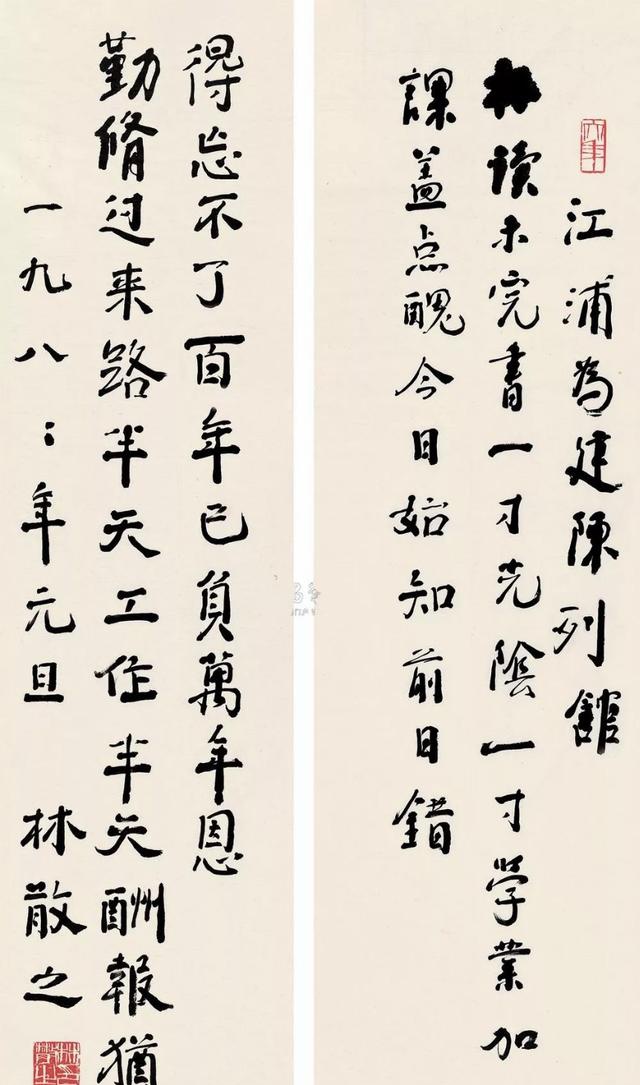 江浦為建陳列館
读未完書一寸光陰一寸学業加
課蓋点醜今日始知前日錯
勤脩过来路半天工作半天酬報猶
得忘不了百年已負萬年恩
一九八二年元旦 林散之